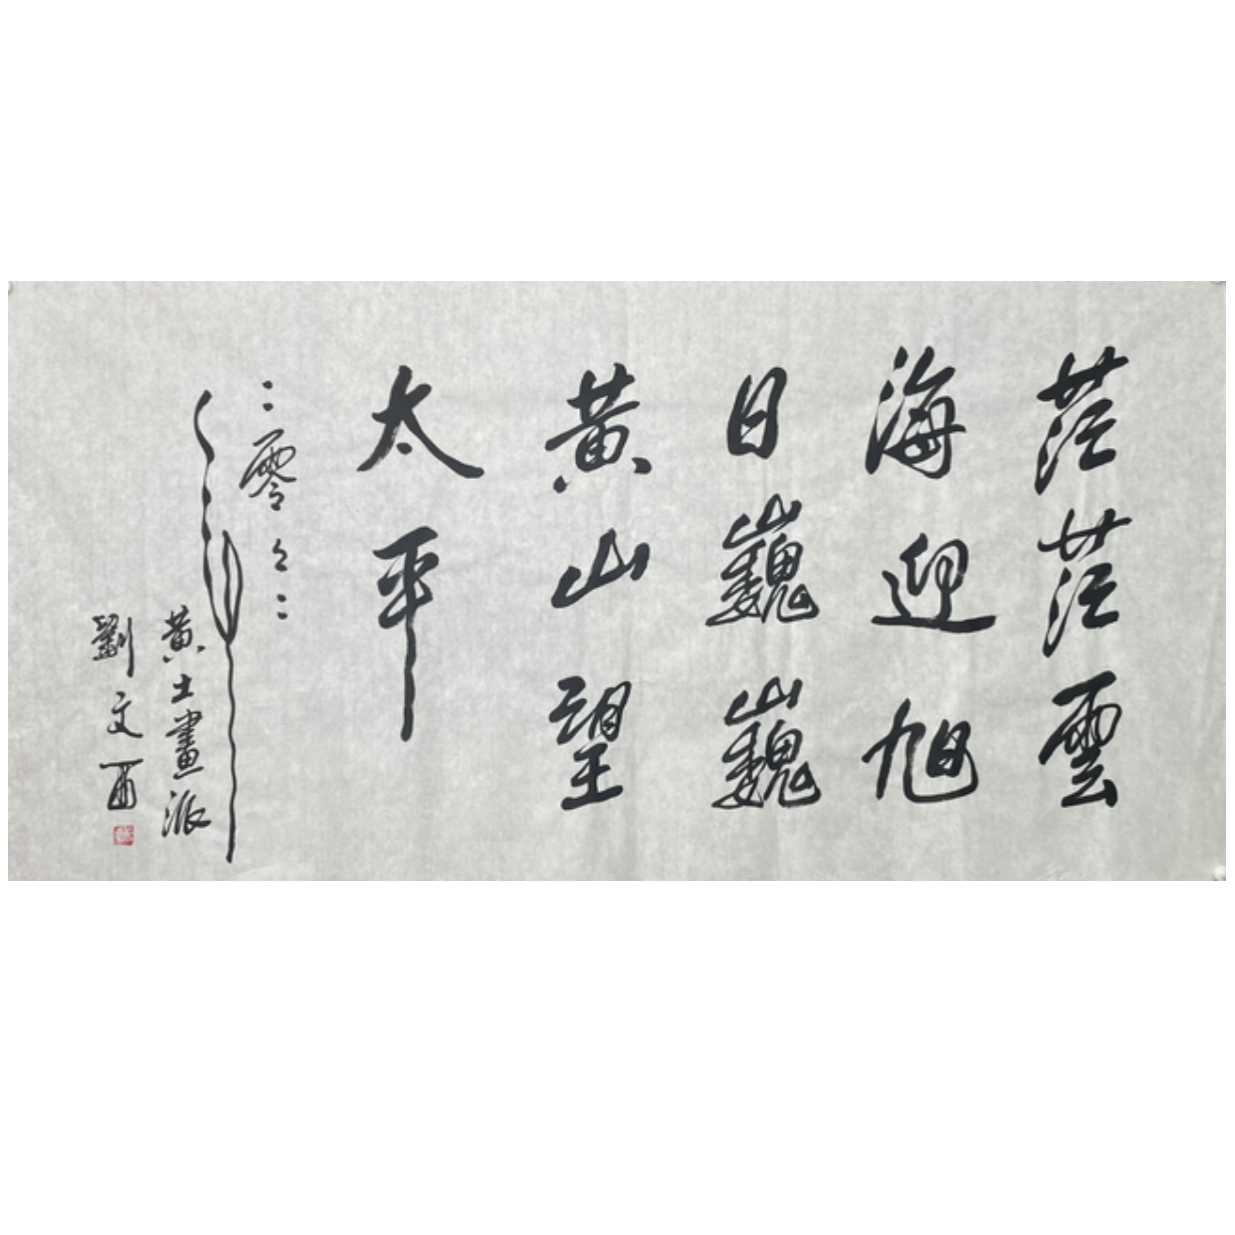 茫茫雲
海迎旭
日巍巍
黃山望
太平
二零
黃土畫派
劉文西